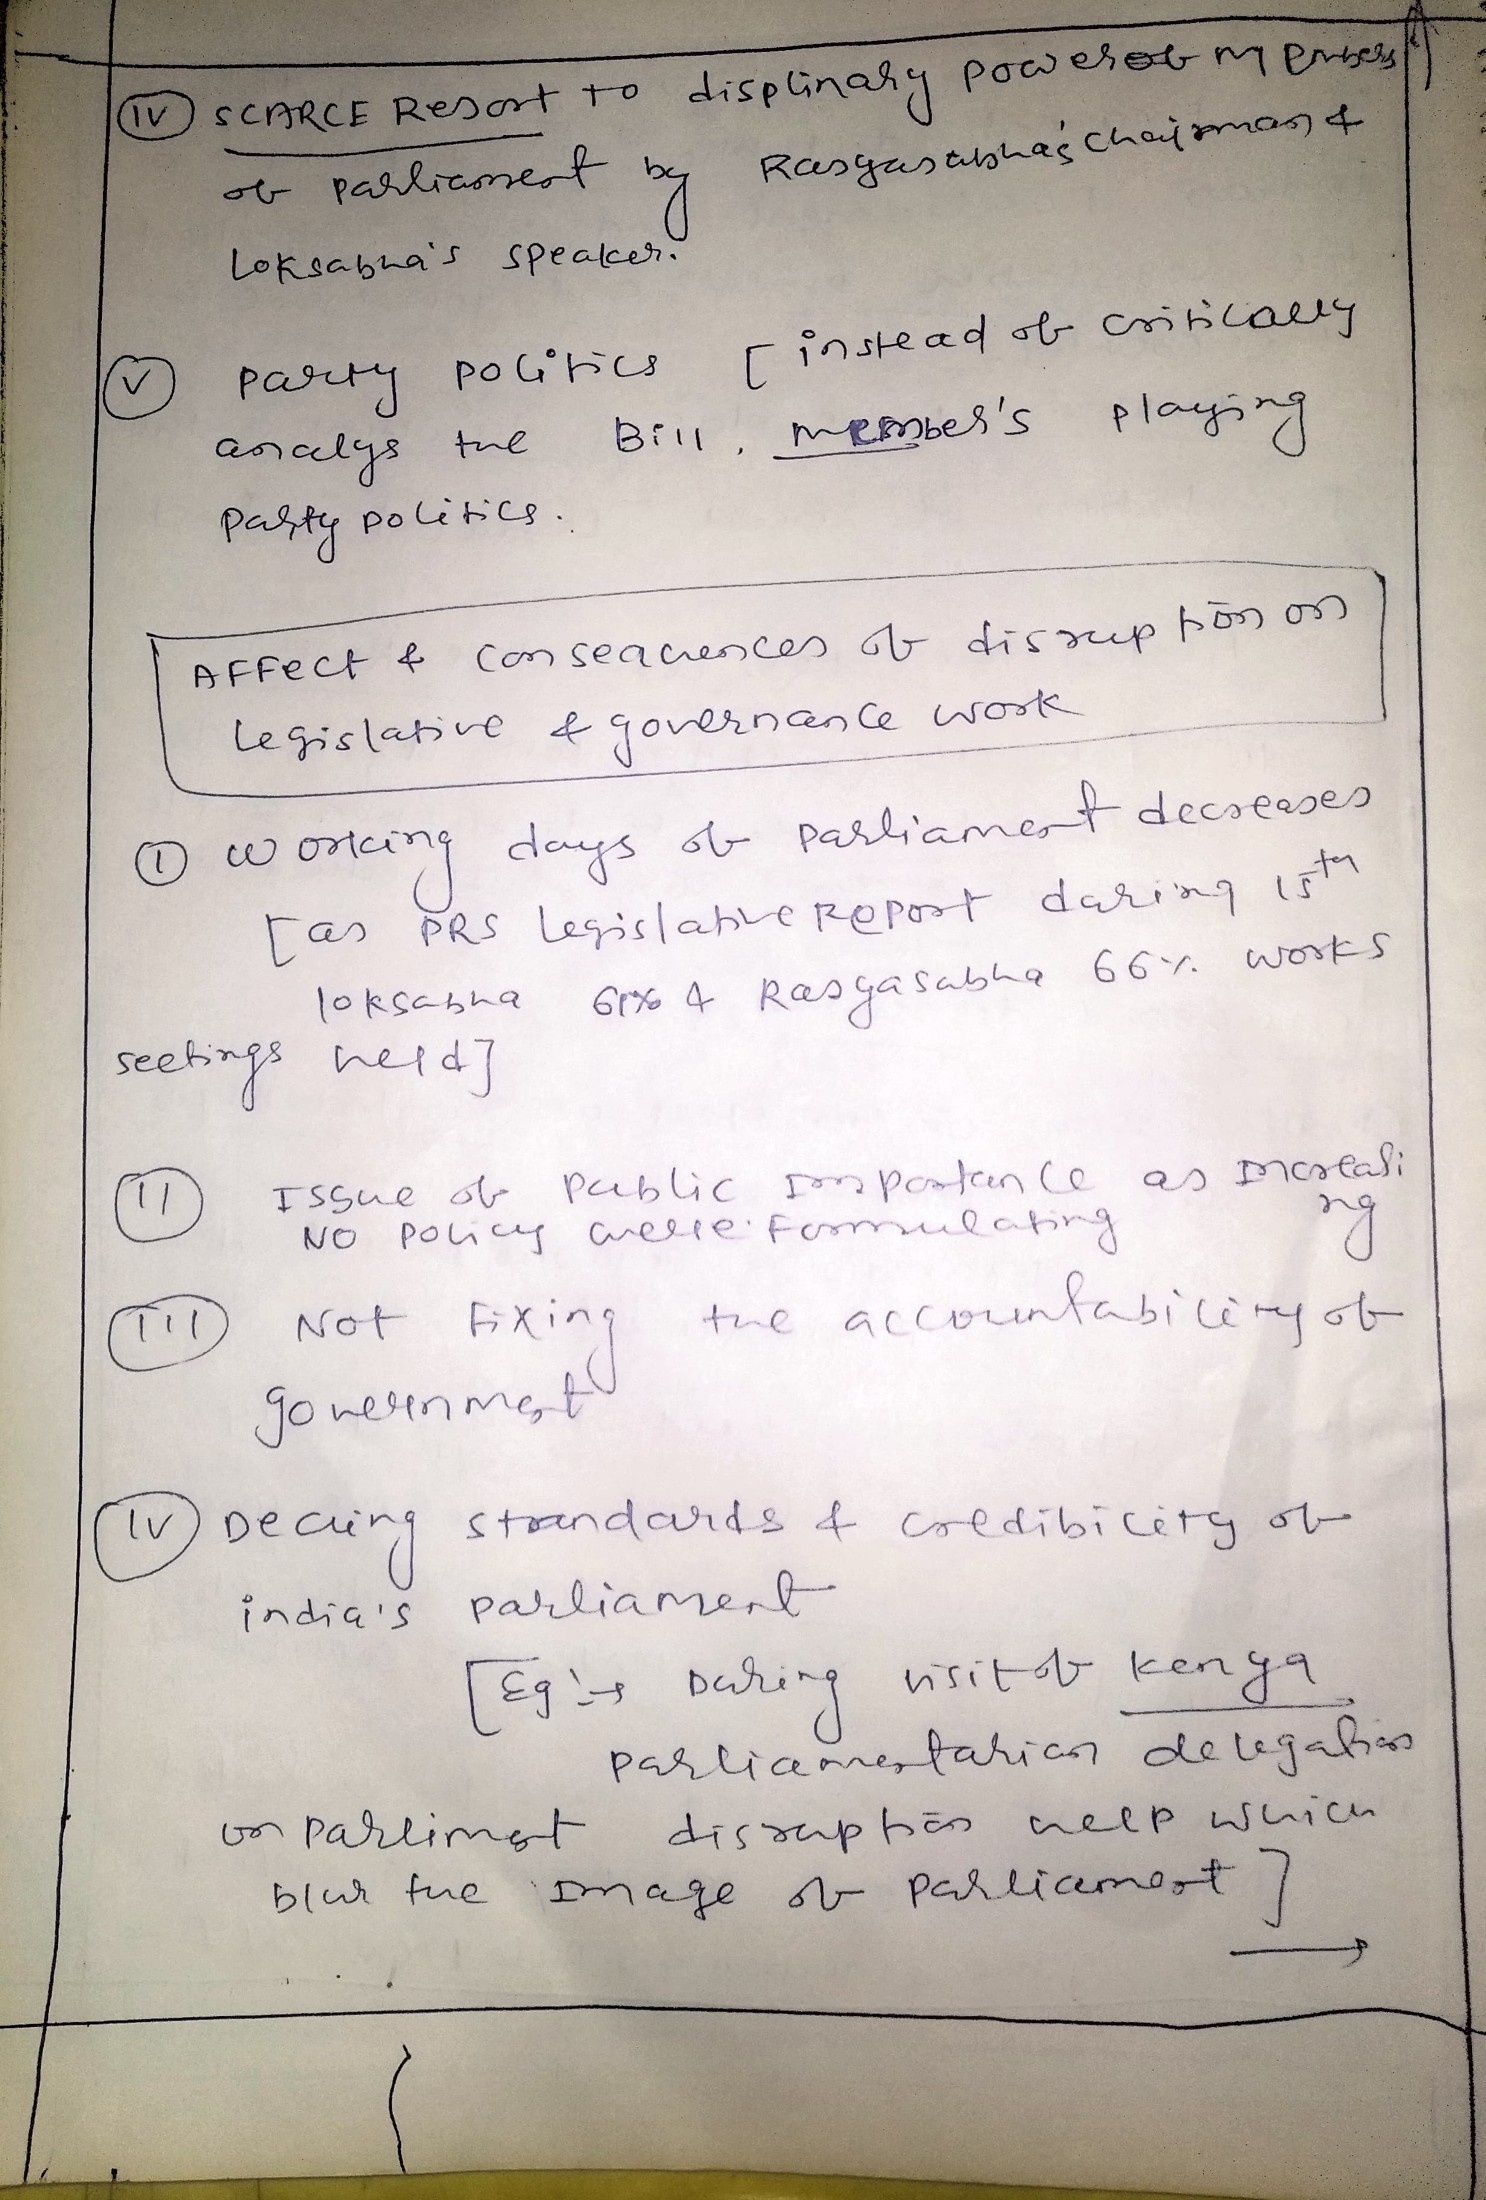 (IV) SCARCE Resort to displinary power of members
of parliament by Rajyasabha's chairman &
Loksabha's speaker.
(V) party politics [instead of critically
analys the Bill, member's playing
party politics.
Affect & consequences of disruption on
legislative & governance work
(I) Working days of parliament decreases
[as PRS legislative Report during 15th
loksabha 61% & Rajyasabha 66% works
seetings held]
(II) Issue of public importance as increasi
ng
No policy were formulating
(III) Not fixing the accountability of
government
(IV) Decling standards & credibility of
india's parliament
[Eg:→ During visit of Kenya
parliamentarian delegation
on parliment disruption help which
blur the image of parliament]